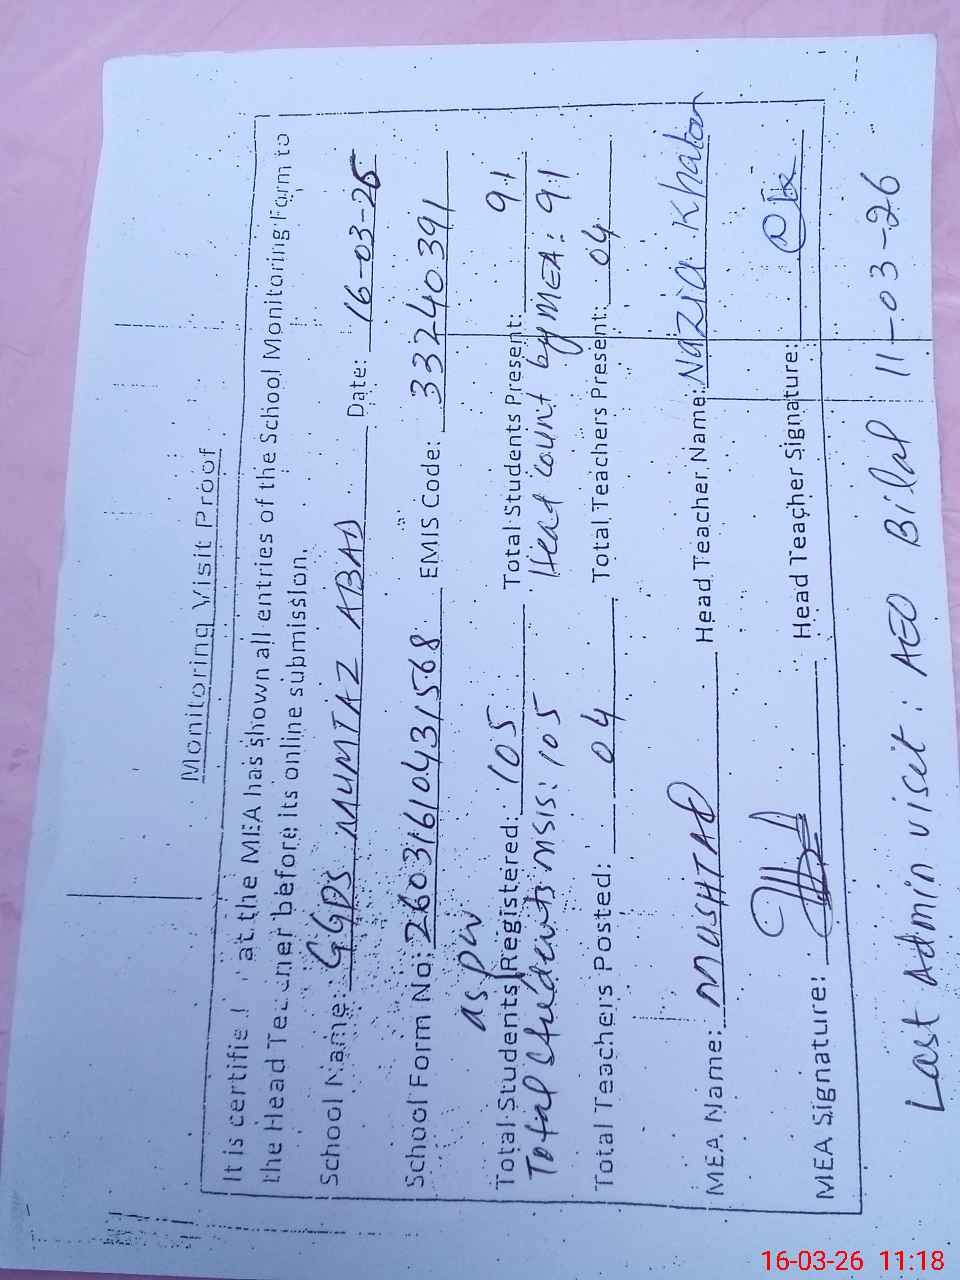 Monitoring Visit Proof
It is certifie at the MEA has shown all entries of the School Monitoring Form to
the Head Teacher before its online submission.
School Name: GGPS MUMTAZ ABAD Date: 16-03-26
School Form No: 26031610431568 EMIS Code: 33240391
as per
Total Students Registered: 105 Total Students Present: 91
Total Students MSIS: 105 Head count by MEA: 91
Total Teachers Posted: 04 Total Teachers Present: 04
MEA Name: MUSHTAQ Head Teacher Name: Nazia Khatoon
MEA Signature: Head Teacher Signature:
Last Admin visit: AEO Bilal 11-03-26
16-03-26 11:18